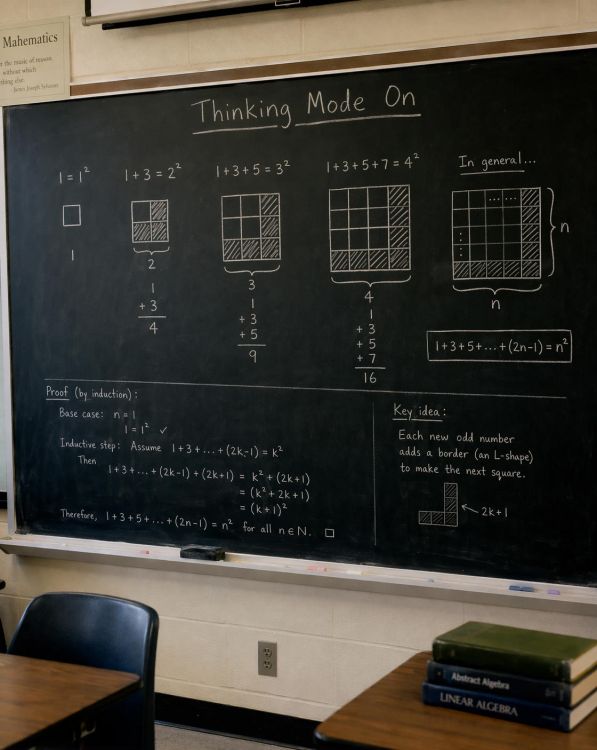 Mahematics
the music of reason.
without which
thing else.
James Joseph Sylvester
Thinking Mode On
1 = 1²
1
1 + 3 = 2²
2
1
+ 3
4
1 + 3 + 5 = 3²
3
1
+ 3
+ 5
9
1 + 3 + 5 + 7 = 4²
4
1
+ 3
+ 5
+ 7
16
In general...
...
n
n
1 + 3 + 5 + ... + (2n-1) = n²
Proof (by induction):
Base case: n = 1
1 = 1² ✓
Inductive step: Assume 1 + 3 + ... + (2k-1) = k²
Then
1 + 3 + ... + (2k-1) + (2k+1) = k² + (2k+1)
= (k² + 2k + 1)
= (k+1)²
Therefore, 1 + 3 + 5 + ... + (2n-1) = n² for all n ∈ N. □
Key idea:
Each new odd number
adds a border (an L-shape)
to make the next square.
2k+1
Abstract Algebra
LINEAR ALGEBRA